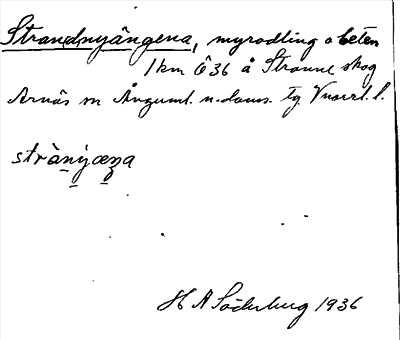 Strandnyängena, myrodling o beten
1 km Ö 36 å Stranne skog
Arnäs sn Ångml. n. doms. tg Vnorrl. l.
strànyæŋa
H A Söderberg 1936